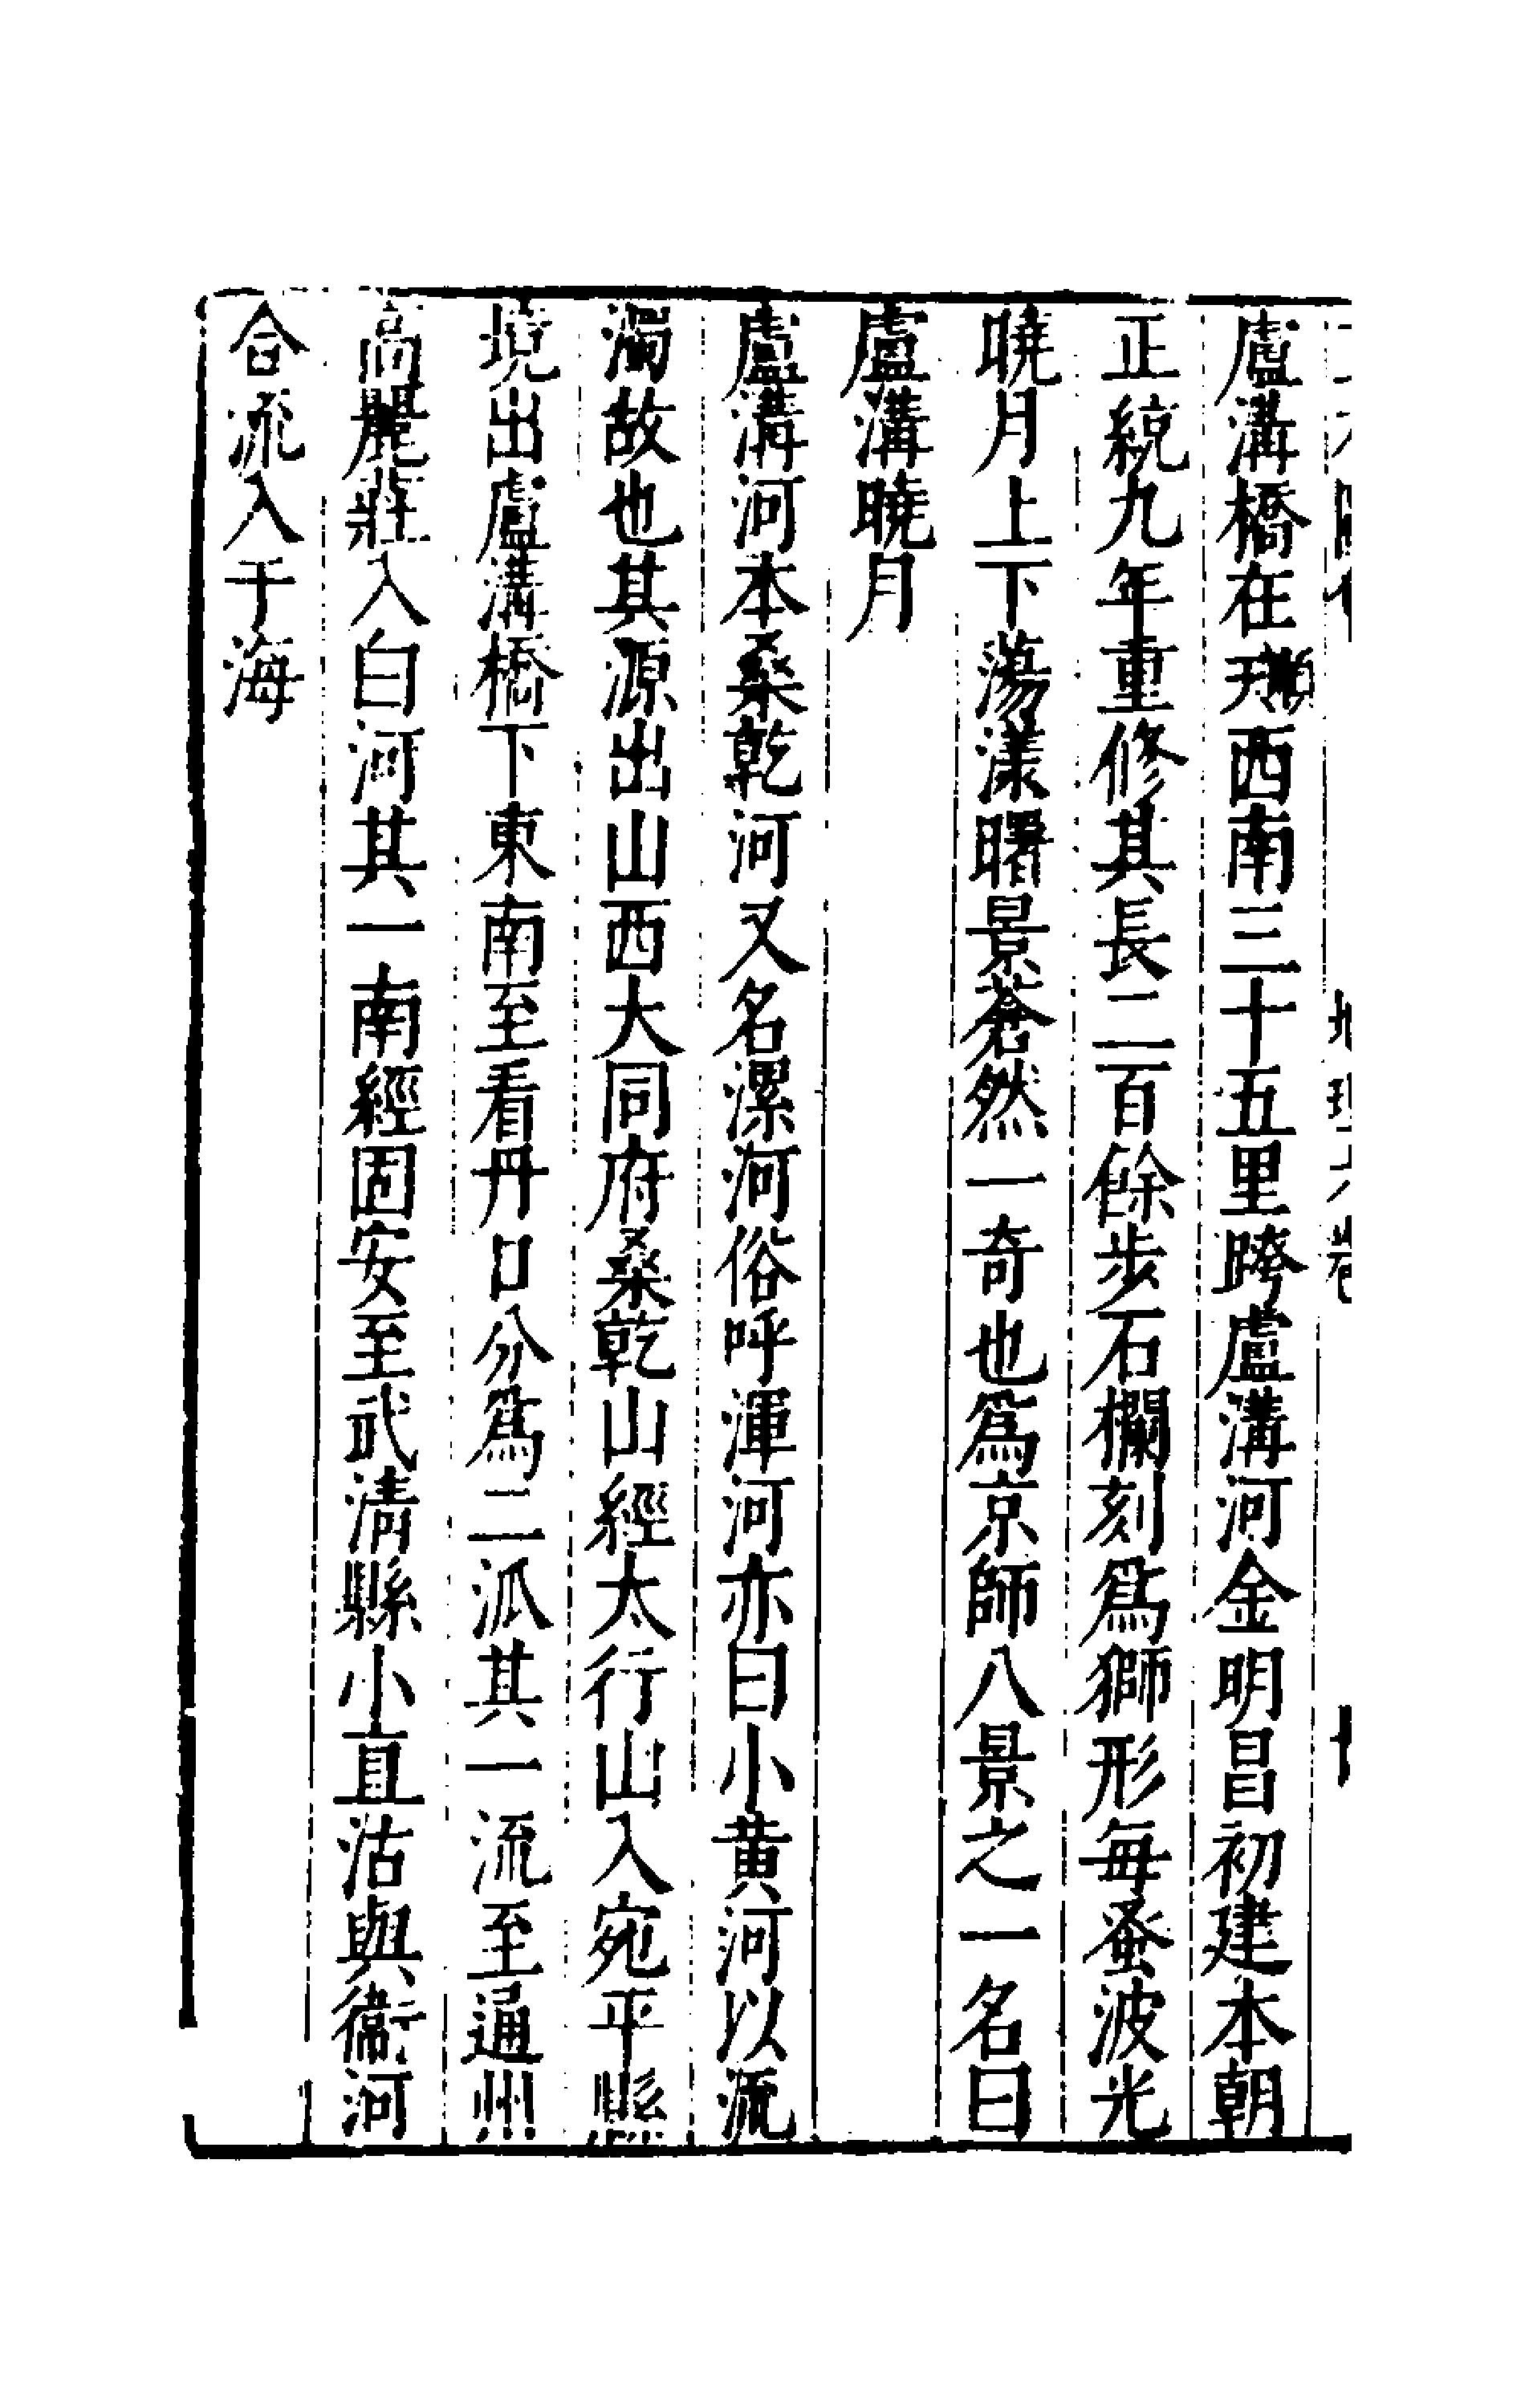 盧溝橋在西南三十五里跨盧溝河金明昌初建本朝
正統九年重修其長二百餘步石欄刻爲獅形每蚤波光
曉月上下蕩漾曙景蒼然一奇也爲京師八景之一名曰
盧溝曉月
盧溝河本桑乾河又名漯河俗呼渾河亦曰小黄河以流
濁故也其源出山西大同府桑乾山經太行山入宛平縣
境出盧溝橋下東南至看丹口分爲二派其一流至通州
高麗莊入白河其一南經固安至武清縣小直沽與衞河
合流入于海